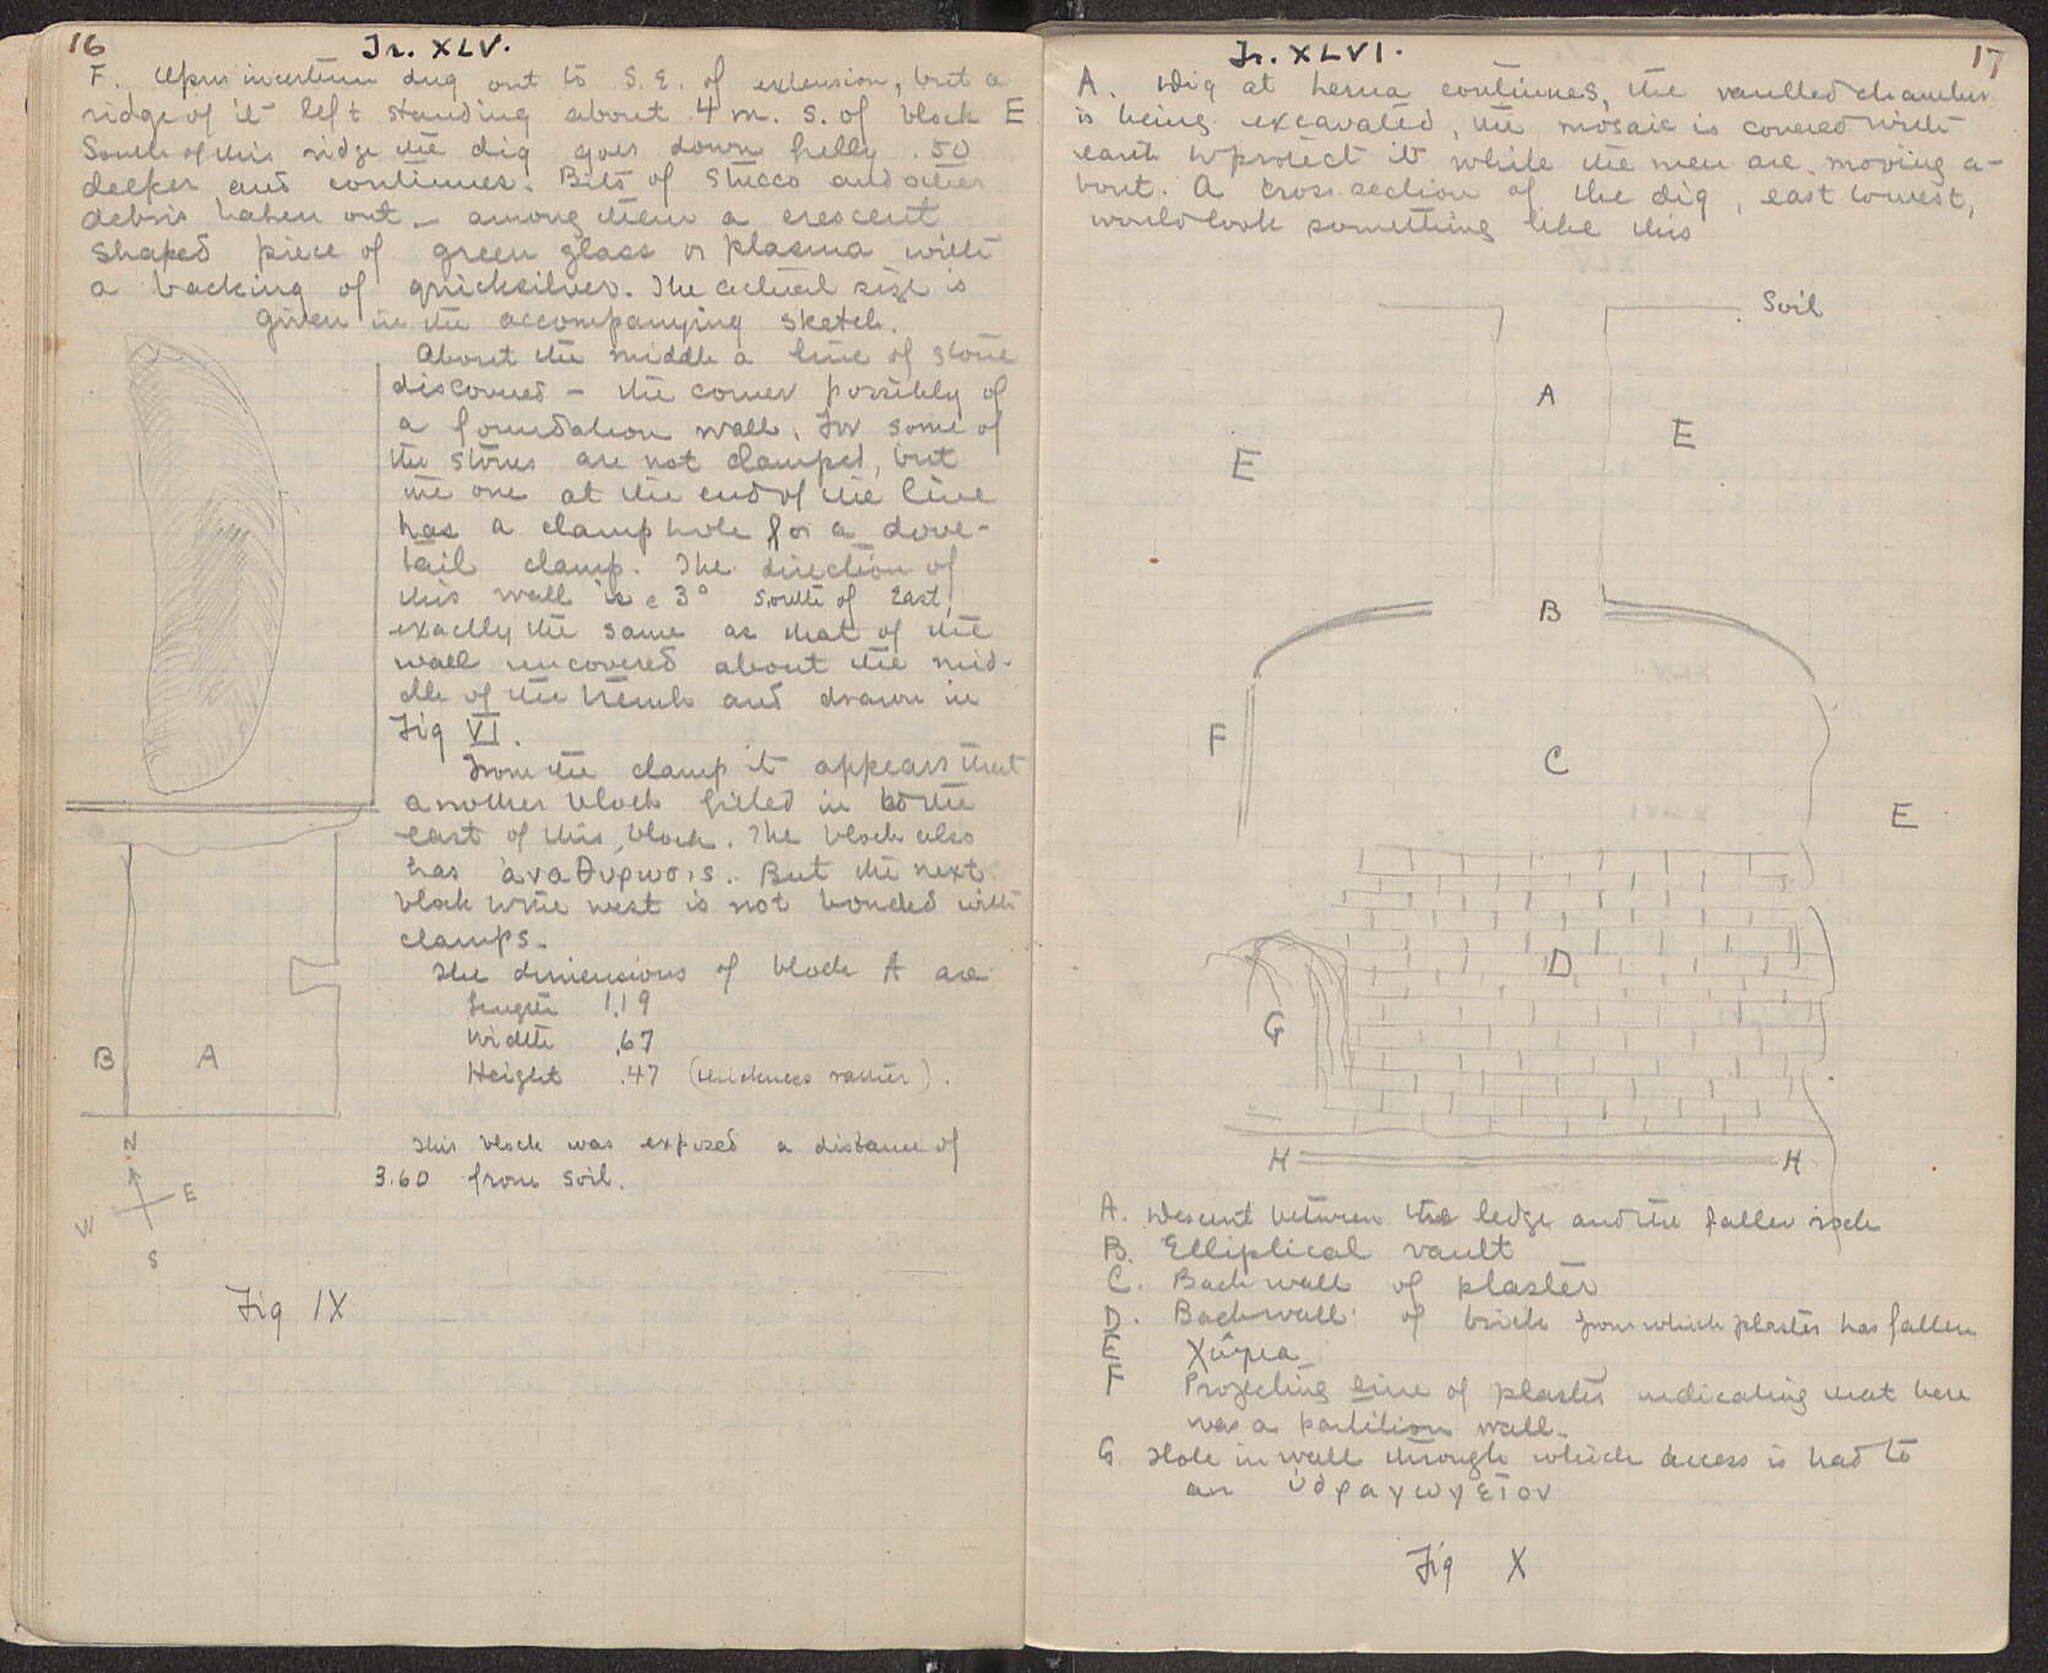 16
Tr. XLV.
F. Opus incertum dug out to S.E. of extension, but a
ridge of it left standing about .4 m. S. of block E
South of this ridge the dig goes down fully .50
deeper and continues. Bits of stucco and other
debris taken out – among them a crescent
shaped piece of green glass or plasma with
a backing of quicksilver. The actual size is
given in the accompanying sketch.
About the middle a line of stone
discovered – the corner possibly of
a foundation wall. For some of
the stones are not clamped, but
the one at the end of the line
has a clamp hole for a dove-
tail clamp. The direction of
this wall is c 3° south of East,
exactly the same as that of the
wall uncovered about the mid-
dle of the trench and drawn in
Fig VI.
From the clamp it appears that
another block fitted in to the
east of this block. The block also
has ἀναθυρωσις. But the next
block to the west is not bonded with
clamps.
The dimensions of block A are
Length 1.19
Width .67
Height .47 (thickness rather).
This block was exposed a distance of
3.60 from soil.
B A
N
E
W
S
Fig IX
17
Tr. XLVI.
A. Dig at herma continues, the vaulted chamber
is being excavated, the mosaic is covered with
earth to protect it while the men are moving a-
bout. A cross section of the dig, east to west,
would look something like this
Soil
A
E
E
B
F
C
E
D
G
H H
A. Descent between the ledge and the fallen rock
B. Elliptical vault
C. Back wall of plaster
D. Back wall of brick from which plaster has fallen
E Χῶμα
F Projecting line of plaster indicating that here
was a partition wall.
G Hole in wall through which access is had to
an ὑδραγωγεῖον
Fig X